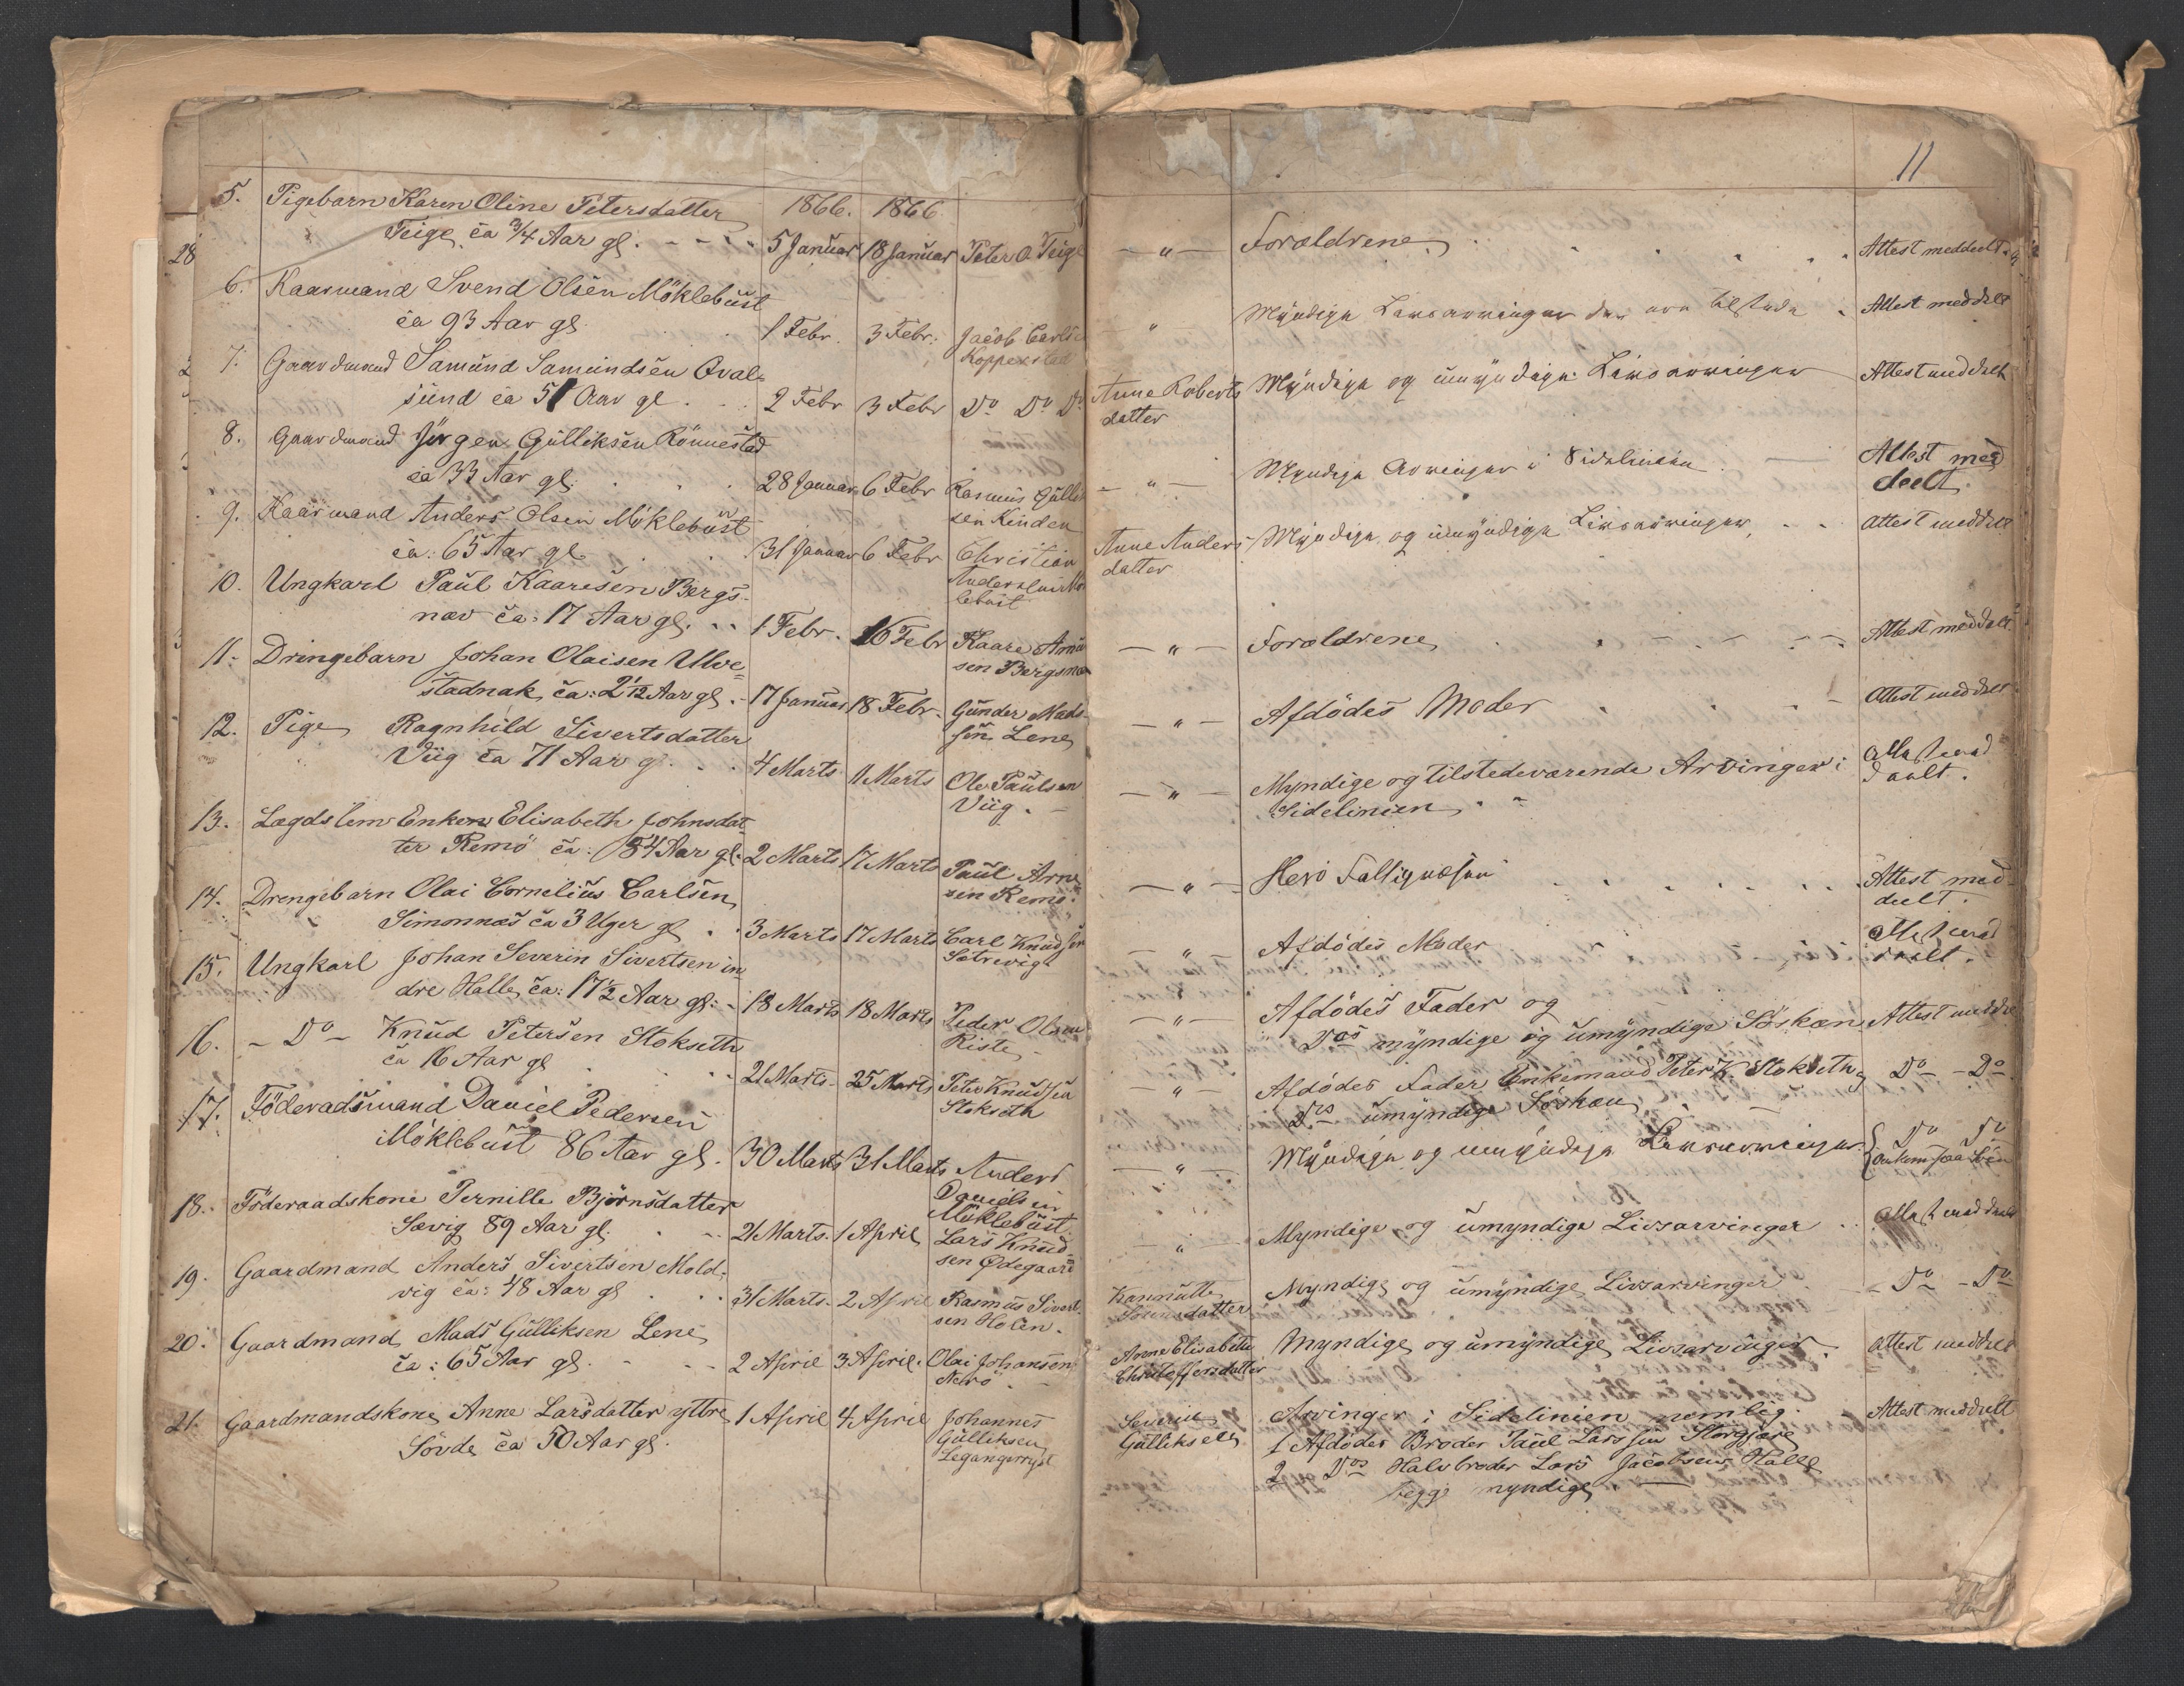 11
1866. 1866
5. Pigebarn Karen Oline Petersdatter
Teige, ca 3/4 Aar gl. 5 Januar 18 Januar Peter O Teige — " — Forældrene Attest meddeelt
6. Kaarmand Svend Olsen Möklebust
ca 93 Aar gl. 1 Febr. 3 Febr. Jacob Carls — " — Myndige Livsarvinger der ere tilstede Attest meddelt
Kopperstad
7. Gaardmand Samund Samundsen Qval-
sund ca 51 Aar gl. 2 Febr 3 Febr Do Do Do Anne Roberts Myndige og umyndige Livsarvinger Attest meddelt
datter
8. Gaardmand Jörgen Gulliksen Rönnestad
ca 33 Aar gl. 28 Januar 6 Febr Rasmus Gullik — " — Myndige Arvinger i Sidelinien Attest med
sen Kinden deelt
9. Kaarmand Anders Olsen Möklebust
ca: 65 Aar gl. 31 Januar 6 Febr Christian Anne Anders Myndige og umyndige Livsarvinger, Attest meddelt
Andersen Mö datter
klebust
10. Ungkarl Paul Kaaresen Bergs-
næv ca: 17 Aar gl. 1 Febr. 16 Febr Kaare — " — Forældrene Attest meddelt
sen Bergsnæv
11. Dringebarn Johan Olaisen Ulve-
stadnak, ca: 2 1/12 Aar gl. 17 Januar 18 Febr. Gunder Mads- — " — Afdödes Moder Attest meddelt
sen Lene
12. Pige Ragnhild Sivertsdatter
Viig ca 71 Aar g. 4 Marts 11 Marts Ole Paulsen — " — Myndige og tilstedeværende Arvinger i Attest med
Viig. Sidelinien deelt.
13. Lægdslem Enken Elisabeth Johnsdat
ter Remö ca: 84 Aar gl. 2 Marts 17 Marts Paul Arne — " — Attest med-
sen Remö. deelt.
14. Drengebarn Olai Cornelius Carlsen
Simonnæs ca 3 Uger gl. 3 Marts 17 Marts Carl Knudsen — " — Afdödes Moder Attest med
Sætrevigt deelt.
15. Ungkarl Johan Severin Sivertsen in
dre Halle, ca: 17 1/2 Aar gl. 18 Marts 18 Marts Peder Olsen — " — Afdödes Fader og
Riste Dos myndige og umyndige Söskøn Attest meddelt
16. - Do - Knud Petersen Stokseth
ca 16 Aar gl 21 Marts. 25 Marts Peter Knudsen — " — Afdödes Fader Enkemand Peter K. Stokseth Do - Do
Stokseth Ds umyndige Söskøn
17. Föderadsmand Daniel Pedersen
Möklebust 86 Aar gl. 30 Marts 31 Marts Anders — " — Myndige og umyndige Livsarvinger. Do Do
Danielsen
Möklebust
18. Föderaadskone Pernille Björnsdatter
Sævig 89 Aar gl. 21 Marts. 1 April Lars Knud- — " — Myndige og umyndige Livsarvinger Attest meddelt
sen Ødegaard
19. Gaardmand Anders Sivertsen Mold-
vig ca: 48 Aar gl 31 Marts. 2 April Rasmus Sivert- Myndige og umyndige Livsarvinger - Do - Do
sen Holen.
20. Gaardmand Mads Gulliksen Lene
ca: 65 Aar gl. 2 April 3 April. Olai Johansen Anne Elisabeth Myndige og umyndige Livsarvinger. Attest meddelt
Nerö Christoffersdatter
21. Gaardmandskone Anne Larsdatter yttre 1 April 4 April Johannes Severin Arvinger i Sidelinien nemlig: Attest meddelt
Sövde ca 50 Aar gl. Gulliksen Gulliksen 1 Afdödes Broder Paul Larssen Storgjære
2 Dos Halvbroder Lars Jacobsen Halle
begge myndige